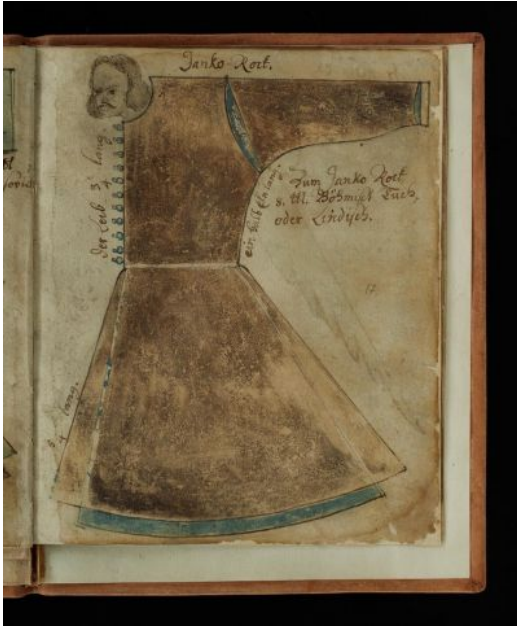 Janko-Rock.
der Leib 3/4 lang.
ein halb Eln lang.
Zum Janko Rock
8. Ell. Böhmisch Tuch,
oder Lindisch.
17
5/4 lang.